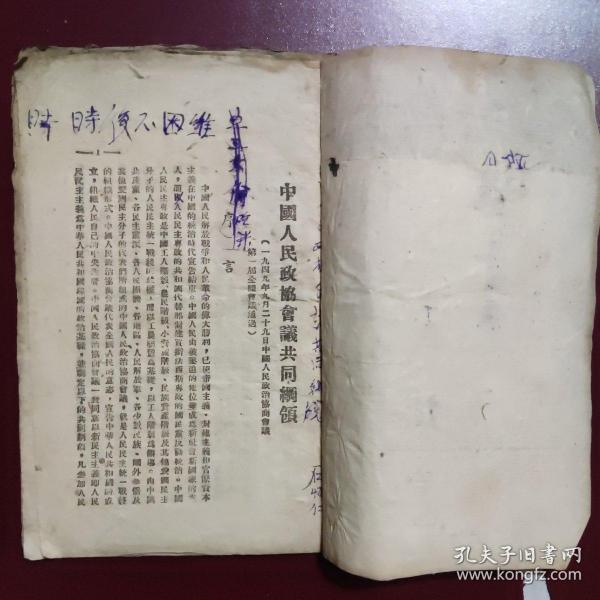 中國人民政協會議共同綱領
（一九四九年九月二十九日中國人民政治協商會議
第一屆全體會議通過）
序言
中國人民解放戰爭和人民革命的偉大勝利，已使帝國主義、封建主義和官僚資本
主義在中國的統治時代宣告結束。中國人民由被壓迫的地位變成爲新社會新國家的主
人，而以人民民主專政的共和國代替那封建買辦法西斯專政的國民黨反動統治。中國
人民民主專政是中國工人階級、農民階級、小資產階級、民族資產階級及其他愛國民主
分子的人民民主統一戰線的政權，而以工農聯盟爲基礎，以工人階級爲領導。由中國
共產黨、各民主黨派、各人民團體、各地區、人民解放軍、各少數民族、國外華僑及
其他愛國民主分子的代表們所組成的中國人民政治協商會議，就是人民民主統一戰線
的組織形式。中國人民政治協商會議代表全國人民的意志，宣告中華人民共和國的成
立，組織人民自己的中央政府。中國人民政治協商會議一致同意以新民主主義即人民
民主主義爲中華人民共和國建國的政治基礎，並制定以下的共同綱領，凡參加人民
1
時後不困難
孔夫子旧书网
www.kongfz.com